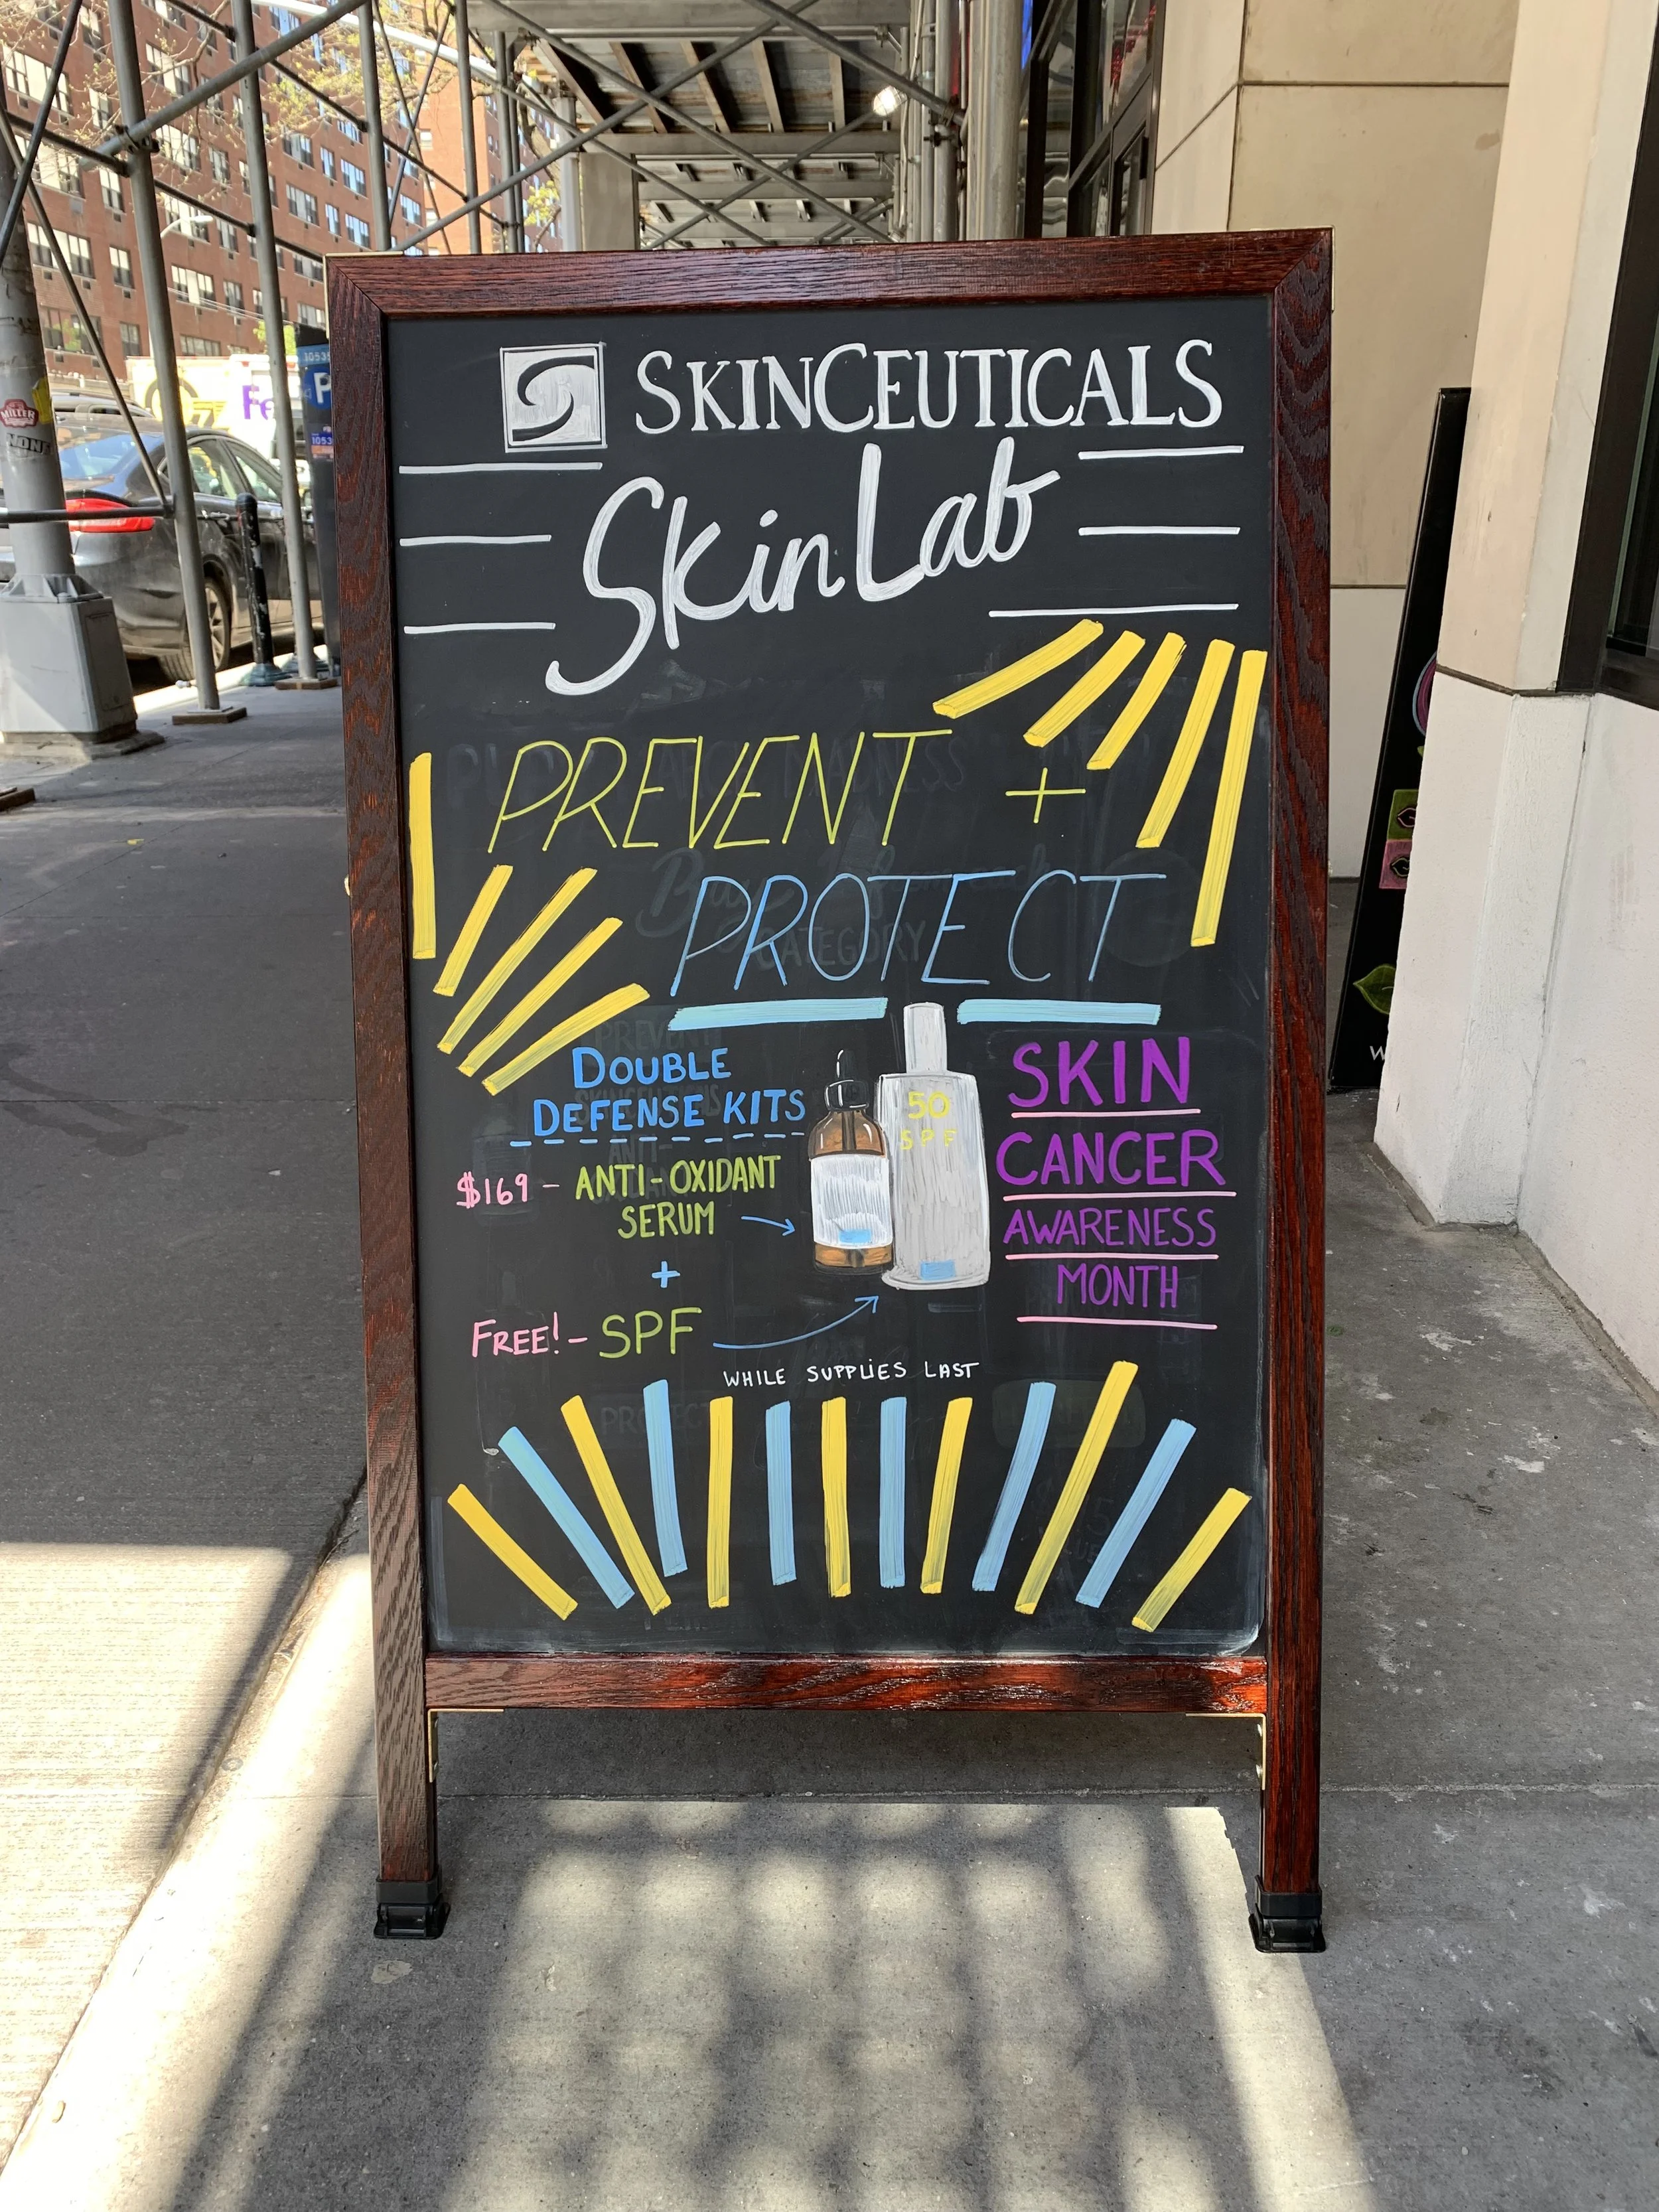 SKINCEUTICALS
SkinLab
PREVENT +
PROTECT
DOUBLE
DEFENSE KITS
$169 - ANTI-OXIDANT
SERUM
+
FREE! - SPF
WHILE SUPPLIES LAST
50
SPF
SKIN
CANCER
AWARENESS
MONTH
Fe
P
MILLER